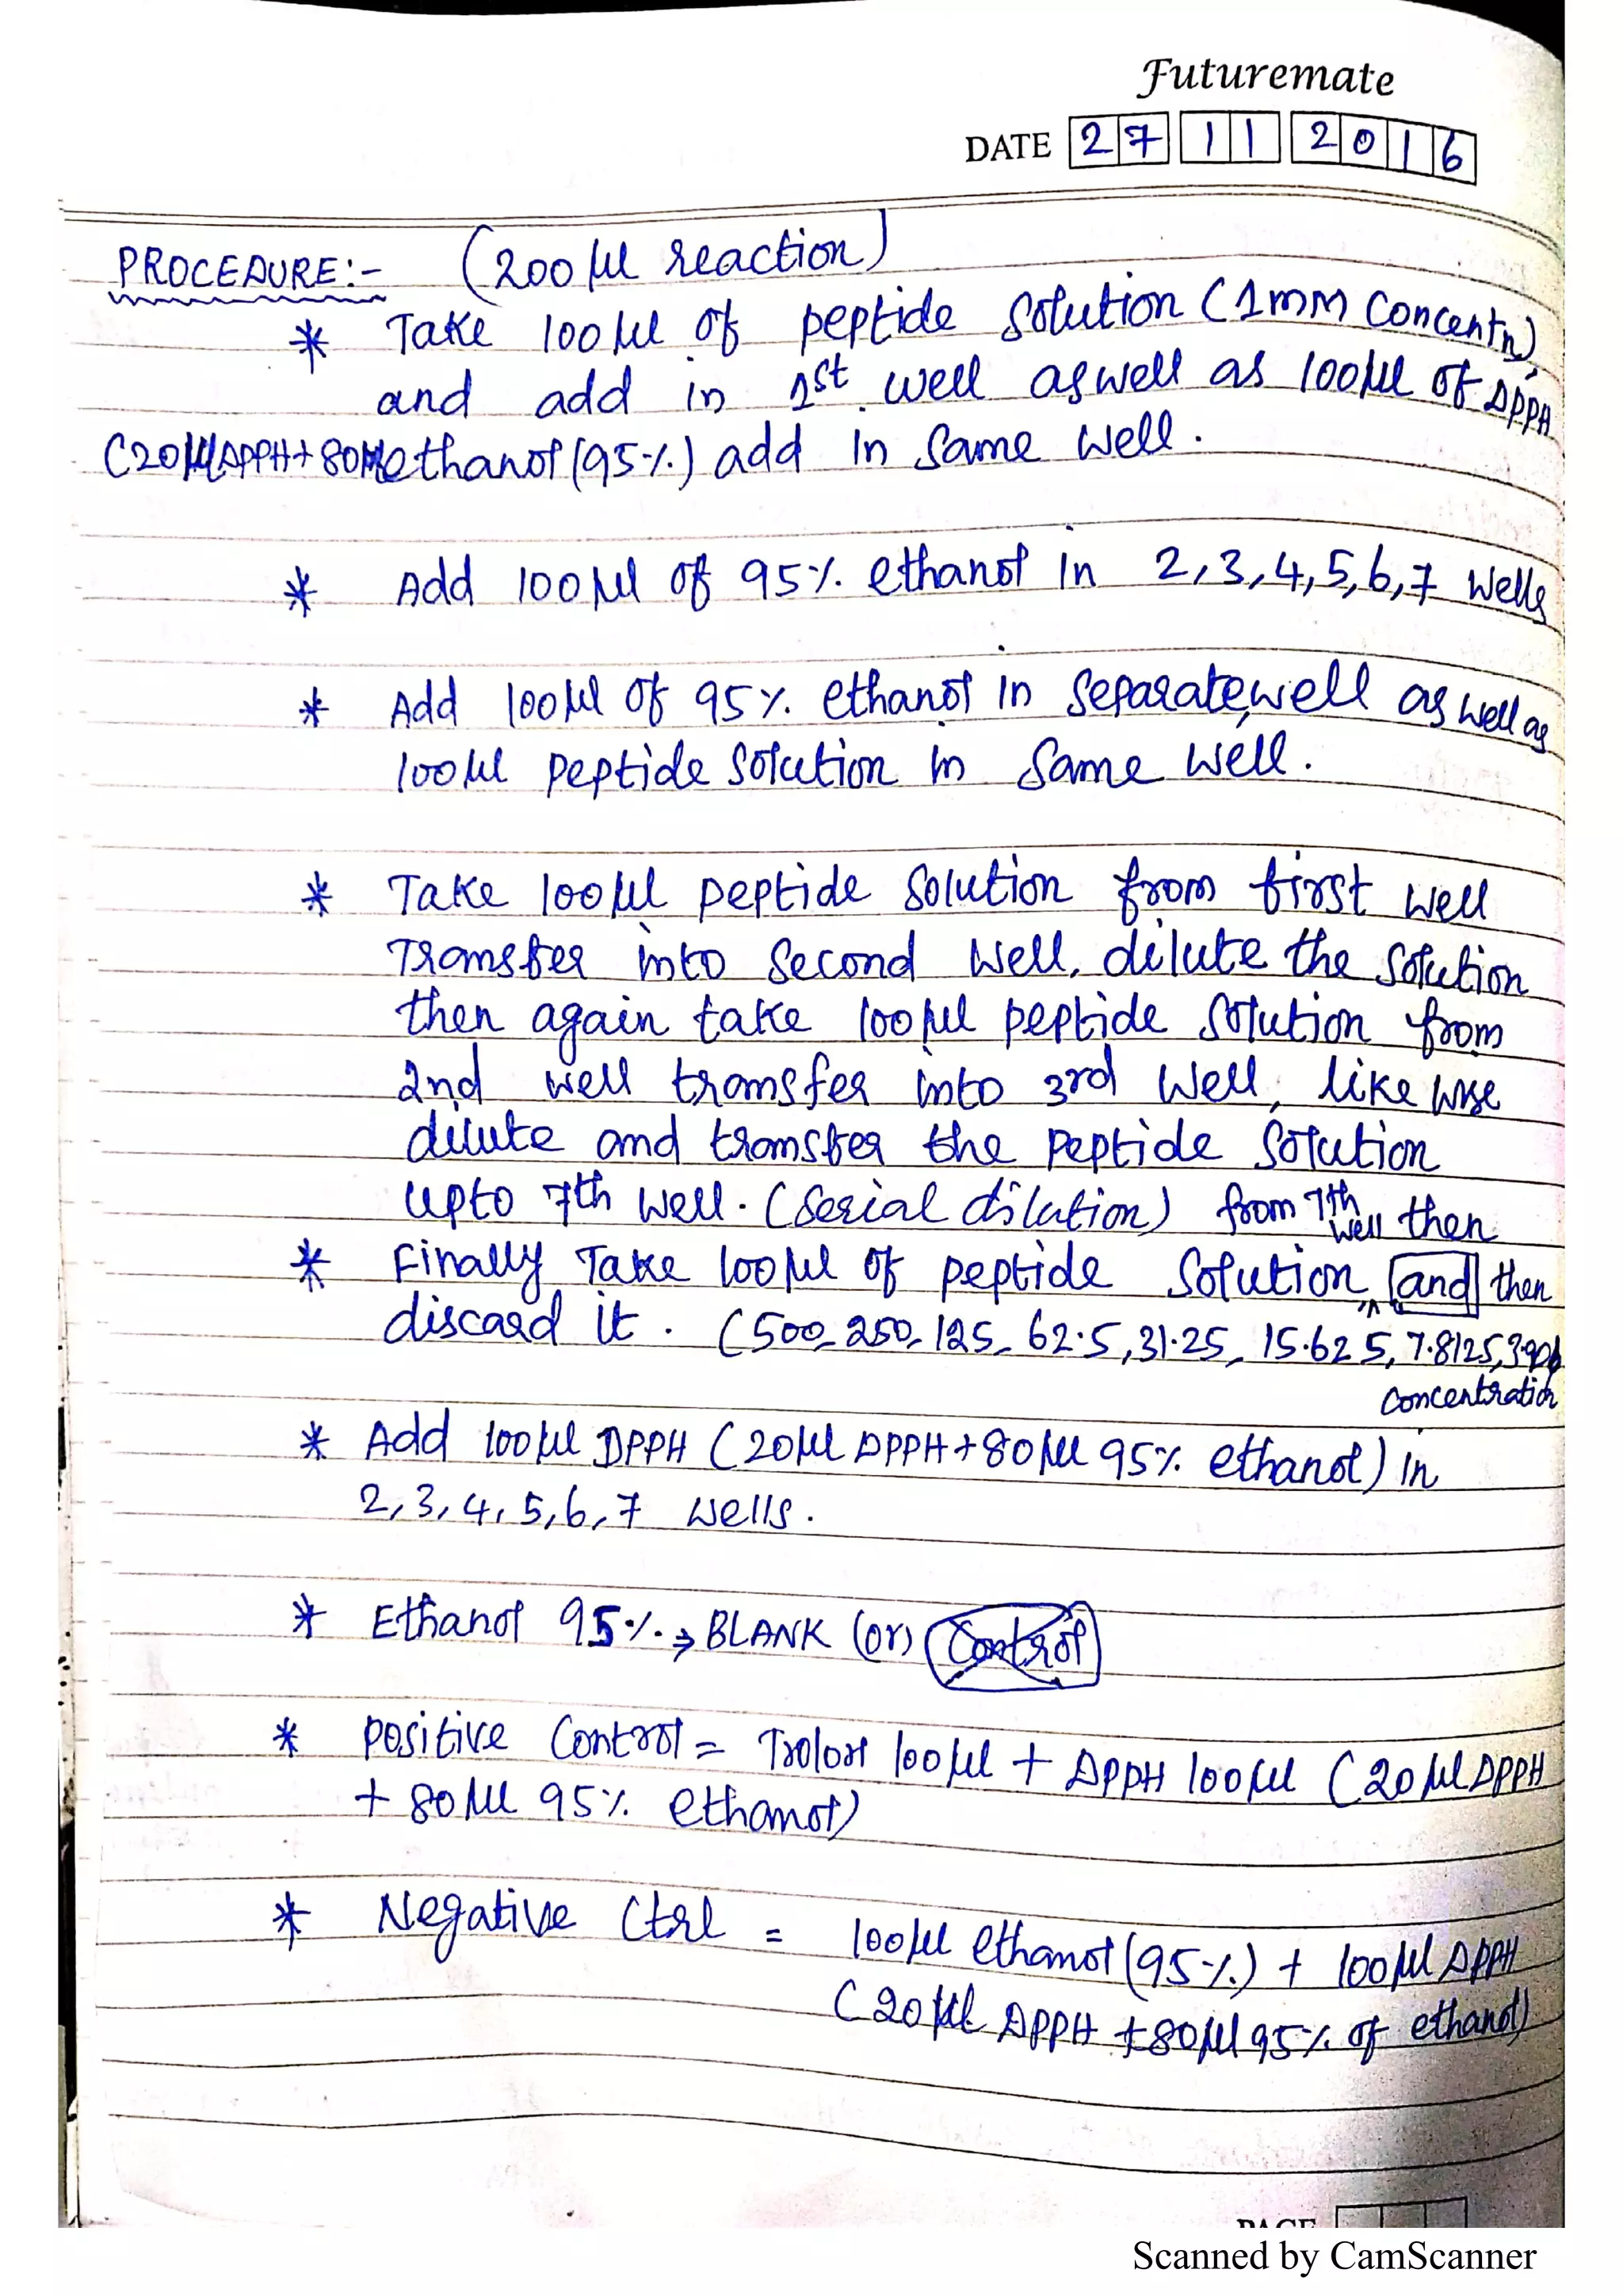 Futuremate
DATE 27 11 2016
PROCEDURE:- (200 µl reaction)
* Take 100 µl of peptide solution (1mM Concentn)
and add in 1st well aswell as 100 µl of DPPH
(20 µl DPPH + 80 ethanol (95%) add in Same Well.
* Add 100 µl of 95% ethanol in 2,3,4,5,6,7 Wells
* Add 100 µl of 95% ethanol in Separate well as well as
100 µl peptide Solution in Same Well.
* Take 100 µl peptide Solution from first Well
Transfer into Second Well, dilute the Solution
then again take 100 µl peptide Solution from
2nd well transfer into 3rd Well, like wise
dilute and transfer the peptide Solution
upto 7th Well. (Serial dilution) from 7th well then
* Finally Take 100 µl of peptide Solution and then
discard it. (500, 250, 125, 62.5, 31.25, 15.625, 7.8125, 3.906
Concentration
* Add 100 µl DPPH (20 µl DPPH + 80 µl 95% ethanol) in
2,3,4,5,6,7 wells.
* Ethanol 95% → BLANK (or) Control
* Positive Control = Trolox 100 µl + DPPH 100 µl (20 µl DPPH
+ 80 µl 95% ethanol)
* Negative Ctrl = 100 µl ethanol (95%) + 100 µl DPPH
(20 µl DPPH + 80 µl 95% of ethanol)
PAGE
Scanned by CamScanner